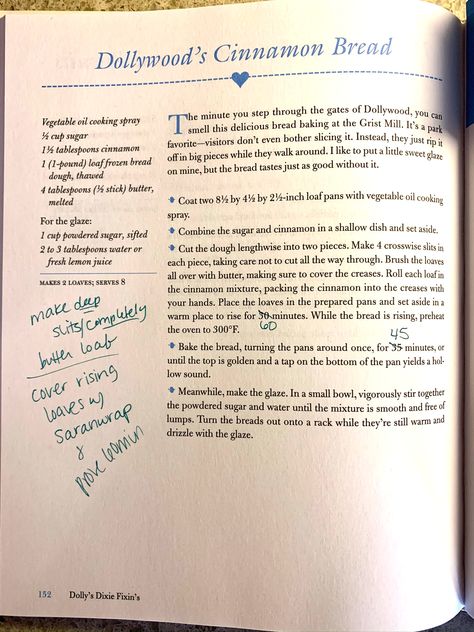 Dollywood's Cinnamon Bread
Vegetable oil cooking spray
½ cup sugar
1½ tablespoons cinnamon
1 (1-pound) loaf frozen bread
dough, thawed
4 tablespoons (½ stick) butter,
melted
For the glaze:
1 cup powdered sugar, sifted
2 to 3 tablespoons water or
fresh lemon juice
MAKES 2 LOAVES; SERVES 8
make deep
slits/completely
butter loaf
cover rising
loaves w/
saranwrap
The minute you step through the gates of Dollywood, you can
smell this delicious bread baking at the Grist Mill. It's a park
favorite—visitors don't even bother slicing it. Instead, they just rip it
off in big pieces while they walk around. I like to put a little sweet glaze
on mine, but the bread tastes just as good without it.
Coat two 8½ by 4½ by 2½-inch loaf pans with vegetable oil cooking
spray.
Combine the sugar and cinnamon in a shallow dish and set aside.
Cut the dough lengthwise into two pieces. Make 4 crosswise slits in
each piece, taking care not to cut all the way through. Brush the loaves
all over with butter, making sure to cover the creases. Roll each loaf in
the cinnamon mixture, packing the cinnamon into the creases with
your hands. Place the loaves in the prepared pans and set aside in a
warm place to rise for 30 minutes. While the bread is rising, preheat
60
the oven to 300°F.
45
Bake the bread, turning the pans around once, for 35 minutes, or
until the top is golden and a tap on the bottom of the pan yields a hol-
low sound.
Meanwhile, make the glaze. In a small bowl, vigorously stir together
the powdered sugar and water until the mixture is smooth and free of
lumps. Turn the breads out onto a rack while they're still warm and
drizzle with the glaze.
152 Dolly's Dixie Fixin's